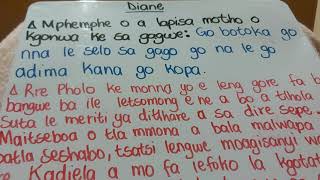 Diane
Δ Mphemphe o a lapisa motho o
kgonwa ke sa gagwe: Go botoka go
nna le selo sa gago go na le go
adima kana go kopa.
Δ Rre Pholo ke monna yo e leng gore fa ba
bangwe ba ile letsomong e ne a bo a tlhola
Suta le meriti ya ditlhare a sa dire sepe.
Maitseboa o tla mmona a bala malwapa
batla seshabo, tsatsi lengwe moagisanyi wa
Kadiela a mo fa lefoko la kgotat